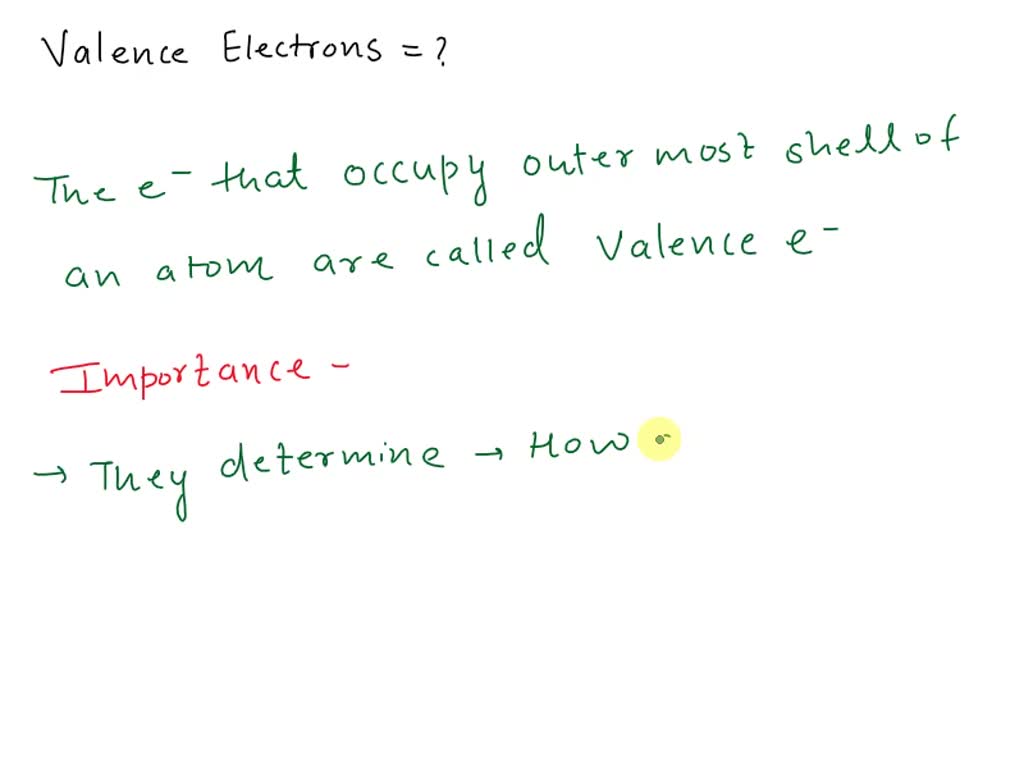 Valence Electrons = ?
The e⁻ that occupy outer most shell of
an atom are called Valence e⁻
Importance -
→ They determine → How